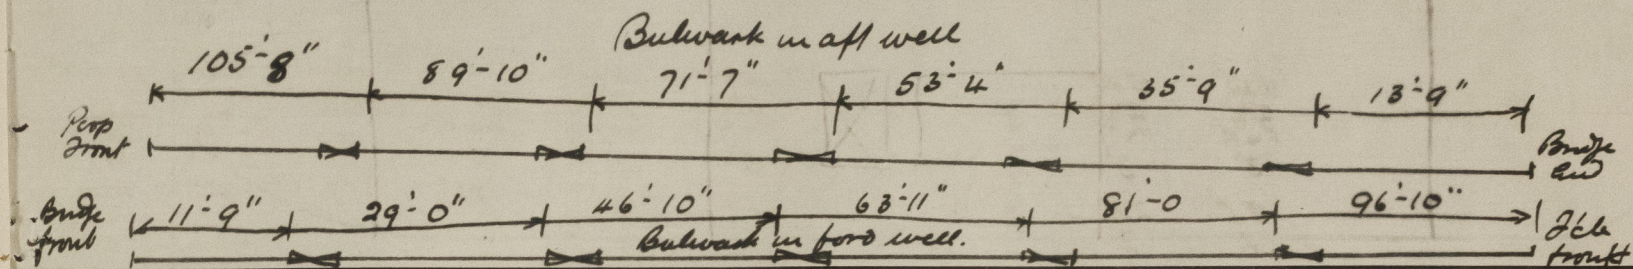 Bulwark in aft well
105'-8" 89'-10" 71'-7" 53'-4" 35'-9" 13'-9"
Poop
Front
Bridge
End
Bridge
front
11'-9" 29'-0" 46'-10" 63'-11" 81'-0 96'-10"
Bulwark in ford well.